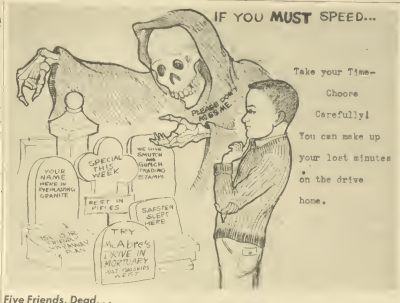 IF YOU MUST SPEED...
Take your Time-
Choose
Carefully!
You can make up
your lost minutes
on the drive
home.
PLEASE DON'T
RUSH ME
YOUR
NAME
HERE IN
EVERLASTING
GRANITE
SPECIAL
THIS
WEEK
WE GIVE
SMUTCH
AND
GONCH
TRADING
STAMPS
REST IN
PIECES
SAFETER
SLEPT
HERE
TRY
McABRE'S
DRIVE IN
MORTUARY
Five Friends, Dead...